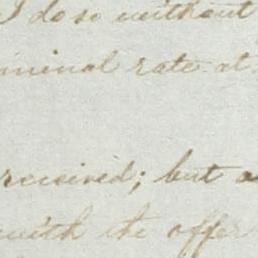 I do so without
minal rate at
received; but a
with the offer